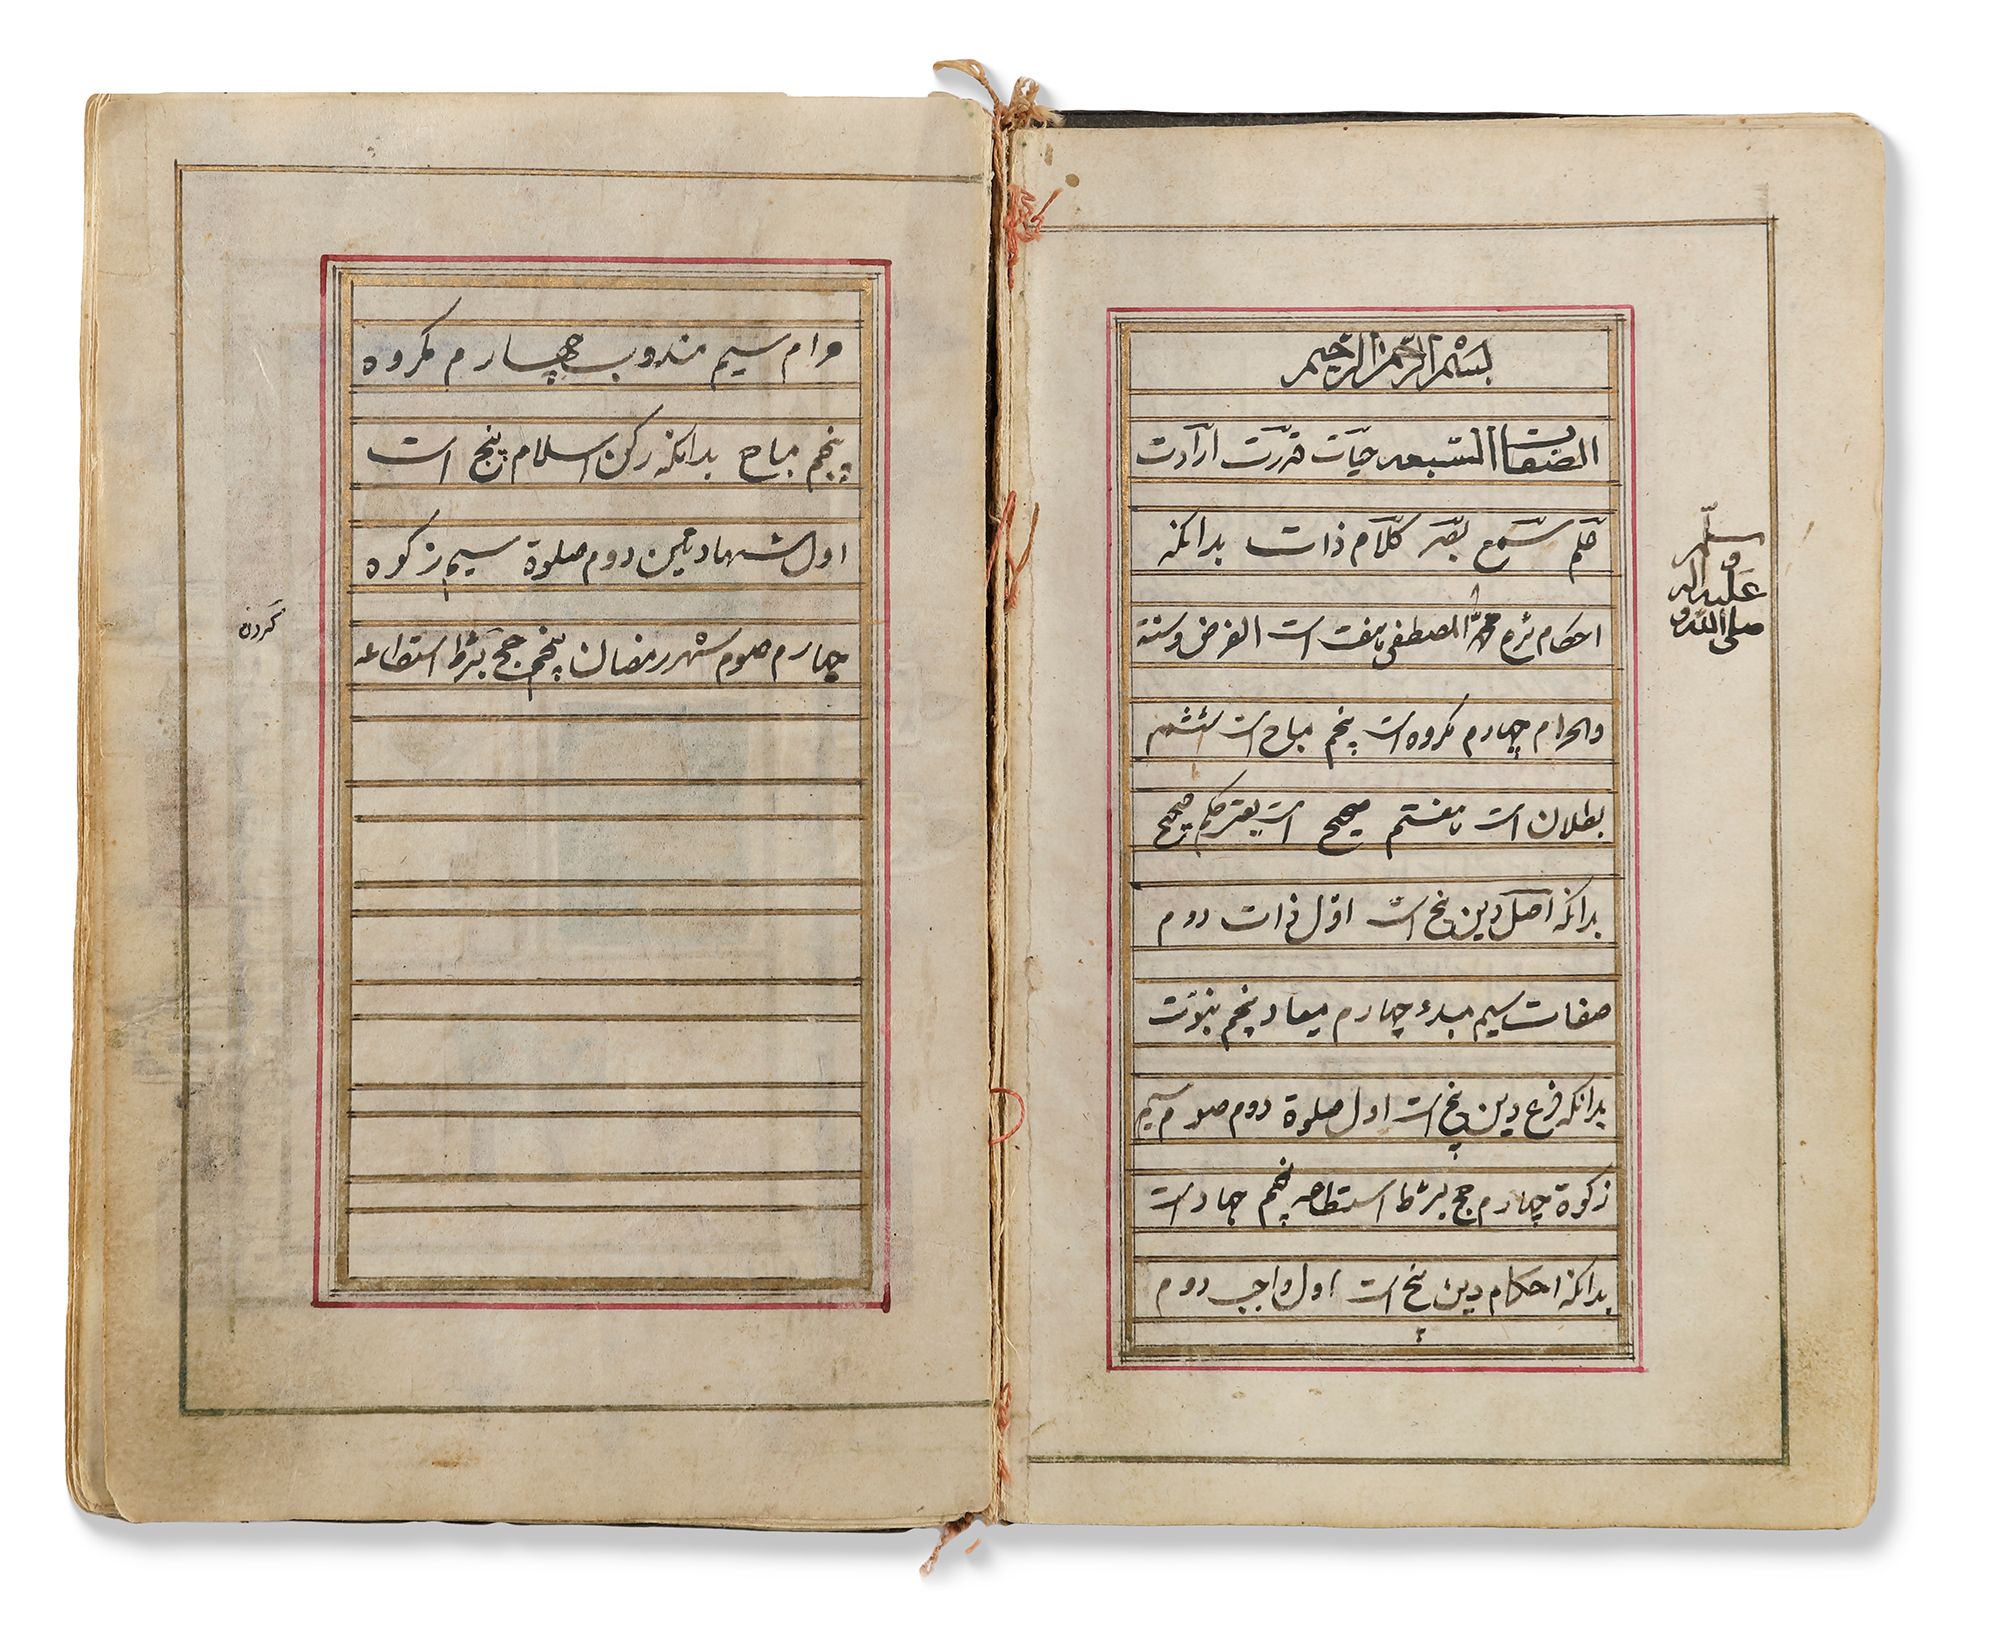 بسم الله الرحمن الرحیم
الصفات السبعه حیات قدرت ارادت
علم سمع بصر کلام ذات بدانکه
احکام شرع محمد المصطفی هفت است الفرض و سنة
والحرام چهارم مکروه است پنجم مباح است ششم
بطلان است هفتم صحیح است یعنی حکم صحیح
بدانکه اصل دین پنج است اول ذات دوم
صفات سیم مبدء چهارم معاد پنجم نبوت
بدانکه فرع دین پنج است اول صلوة دوم صوم سیم
زکوة چهارم حج بشرط استطاعه پنجم جهاد است
بدانکه احکام دین پنج است اول واجب دوم
۲
صلی الله
علیه و اله
و سلم
حرام سیم مندوب چهارم مکروه
پنجم مباح بدانکه رکن اسلام پنج است
اول شهادتین دوم صلوة سیم زکوة
چهارم صوم شهر رمضان پنجم حج بشرط استطاعه
کردن